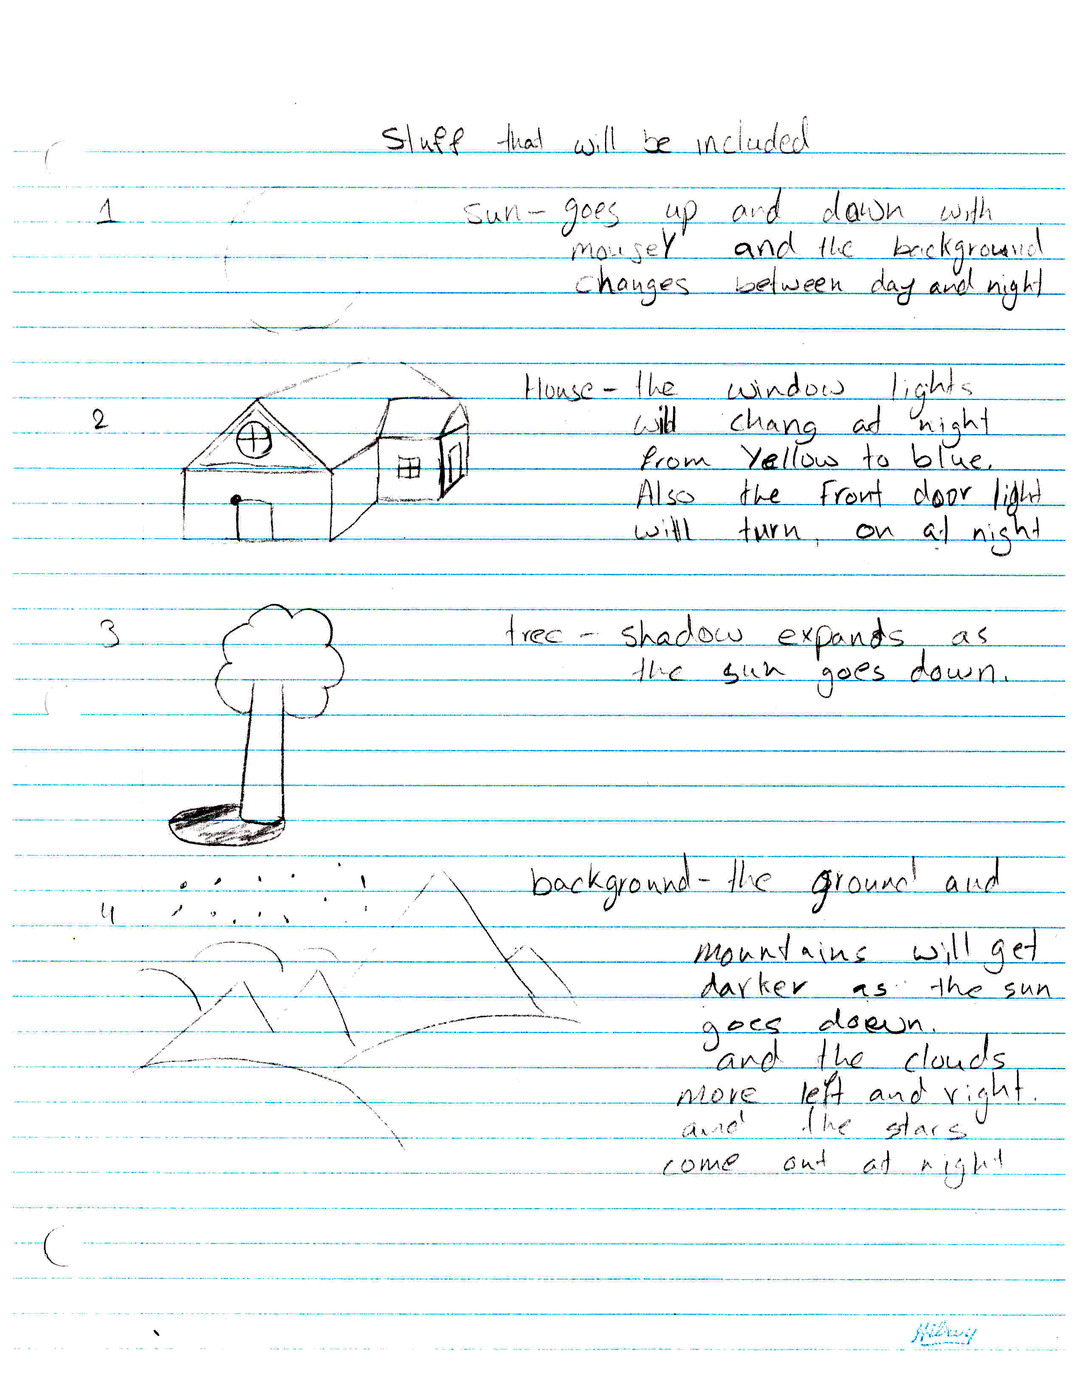 Stuff that will be included
1
Sun - goes up and down with
mouseY and the background
changes between day and night
2
House - the window lights
will chang at night
from Yellow to blue.
Also the front door light
will turn on at night
3
tree - shadow expands as
the sun goes down.
4
background - the ground and
mountains will get
darker as the sun
goes doown.
and the clouds
move left and right.
and the stars
come out at night